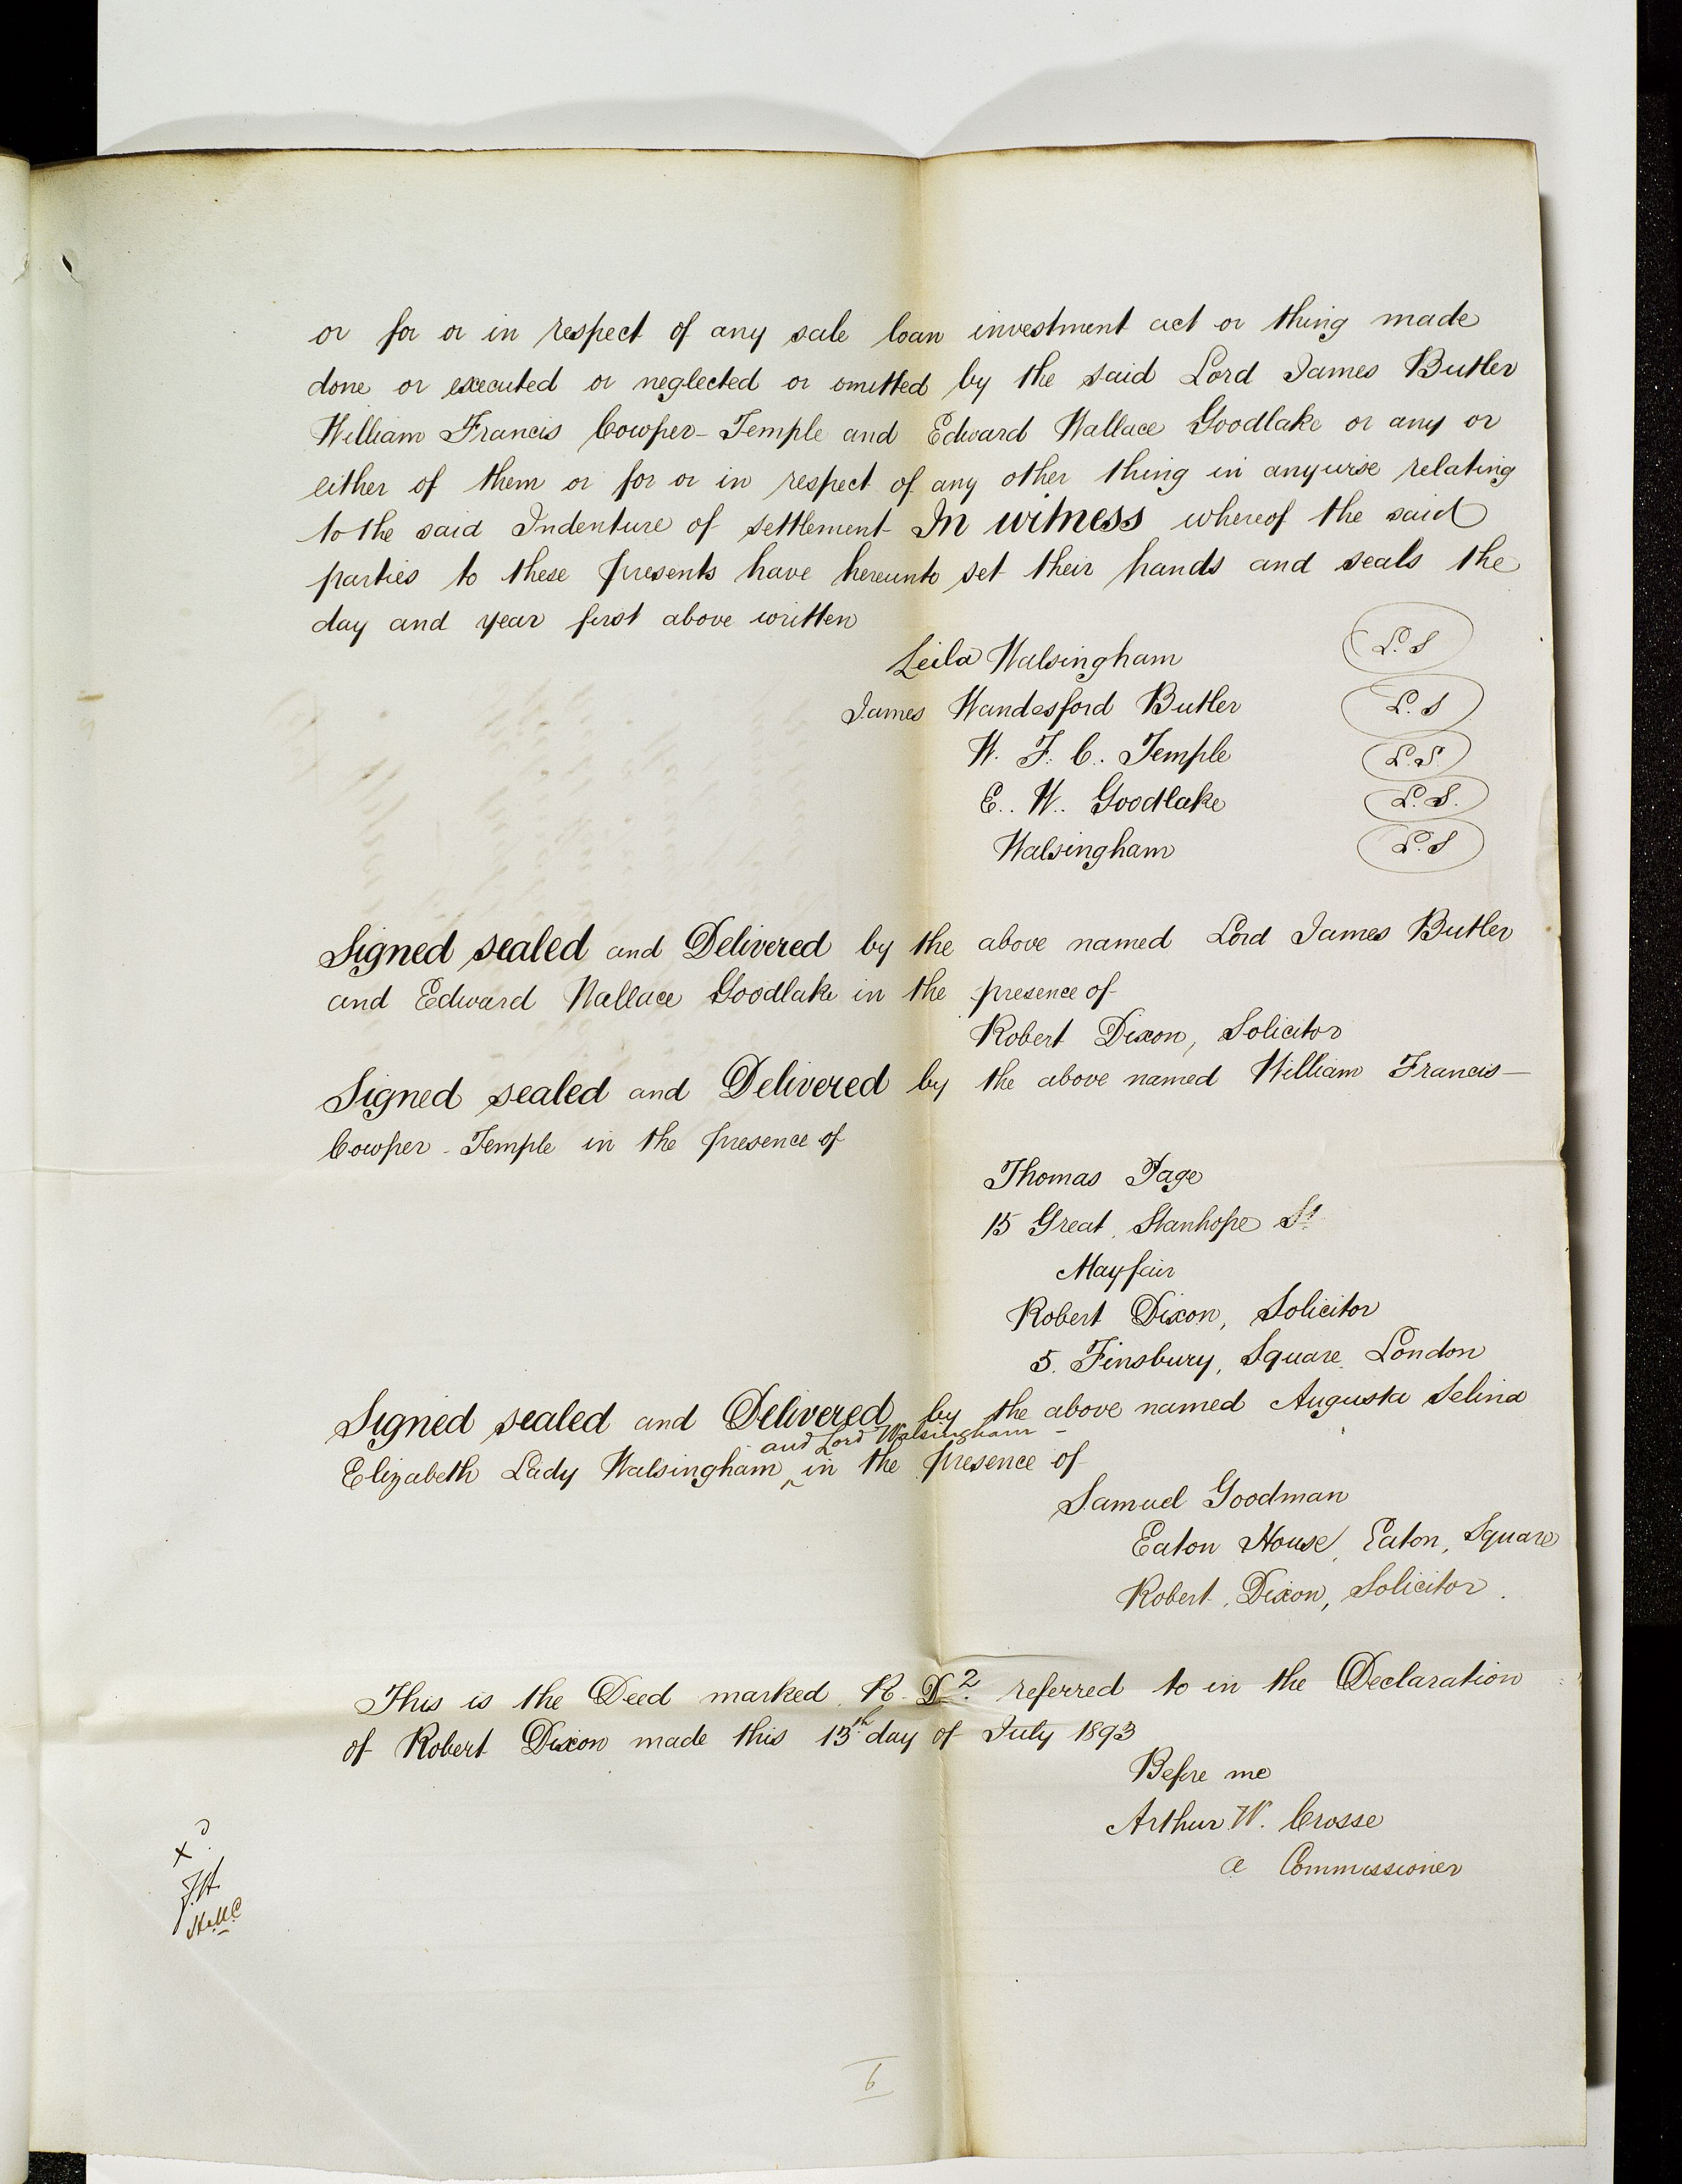 or for or in respect of any sale loan investment act or thing made
done or executed or neglected or omitted by the said Lord James Butler
William Francis Cowper-Temple and Edward Wallace Goodlake or any or
either of them or for or in respect of any other thing in anywise relating
to the said Indenture of settlement In witness whereof the said
parties to these presents have hereunto set their hands and seals the
day and year first above written
Leila Walsingham L.S
James Wandesford Butler L.S
W. F. C. Temple L.S.
E. W. Goodlake L.S.
Walsingham L.S
Signed sealed and Delivered by the above named Lord James Butler
and Edward Wallace Goodlake in the presence of
Robert Dixon, Solicitor
Signed sealed and Delivered by the above named William Francis—
Cowper-Temple in the presence of
Thomas Page
15 Great Stanhope St
Mayfair
Robert Dixon, Solicitor
5. Finsbury, Square London
Signed sealed and Delivered by the above named Augusta Selina
and Lord Walsingham -
Elizabeth Lady Walsingham ^ in the presence of
Samuel Goodman
Eaton House, Eaton, Square
Robert Dixon, Solicitor.
This is the Deed marked R. D2. referred to in the Declaration
of Robert Dixon made this 13th day of July 1893
Before me
Arthur W. Crosse
a Commissioner
x
6